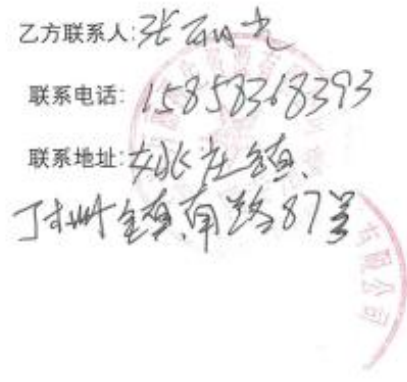 乙方联系人:张丽光
联系电话:15858368393
联系地址:姚庄镇
丁栅镇南路87号
有限公司